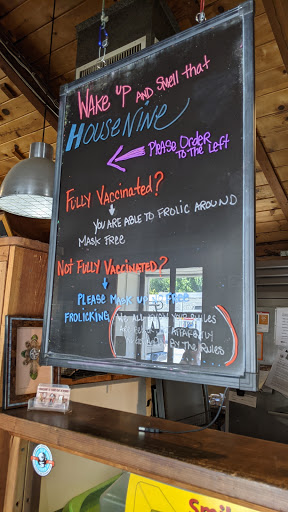 Wake up and smell that
House Nine
Please Order
to the left
Fully Vaccinated?
You are able to frolic around
mask free
Not Fully Vaccinated?
Please mask up
frolicking
Rules
by the Rules